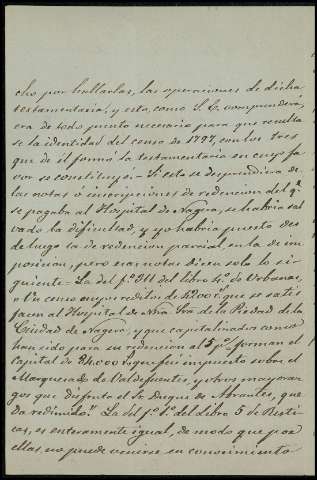 cho por hallarlas, las operaciones de dicha
testamentaria, y esto, como S. E. comprenderá,
era de todo punto necesario para que resulta
se la identidad del censo de 1797, con los tres
que de él formó la testamentaria en cuyo fa
vor se constituyó.= Si esto se desprendiera de
las notas ó inscripciones de redencion del q.e
se pagaba al Hospital de Nagera, se habria sal
vado la dificultad, y yo habria puesto des
de luego la de redencion parcial, en la de im
posicion; pero esas notas dicen solo lo si
guiente= La del f.º 211 del libro 4.º de Urbanas,
censo cuyo redito de 1200 r.s que se satis
facen al Hospital de Ntra. Sra. de la Piedad de la
Ciudad de Nagera, y que capitalizados como se
han sido para su redencion al 5 p% forman el
Capital de 24.000 r.s que fué impuesto sobre el
Marquesado de Valdefuentes, y otros mayoraz
gos que disfruta el Sr. Duque de Abrantes, que
da redimido." La del f.º 1.º del Libro 5 de Rusti
cas, es enteramente igual, de modo que por
ellas no puede venirse en conocimiento